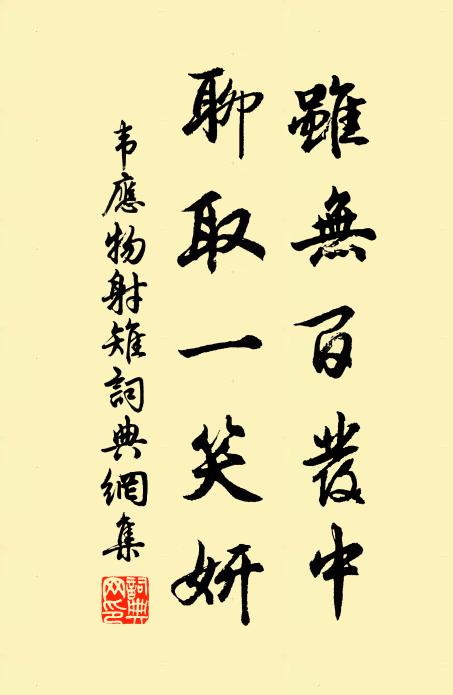 雖無百發中
聊取一笑妍
韦應物射雉詞典網集
詞典网印